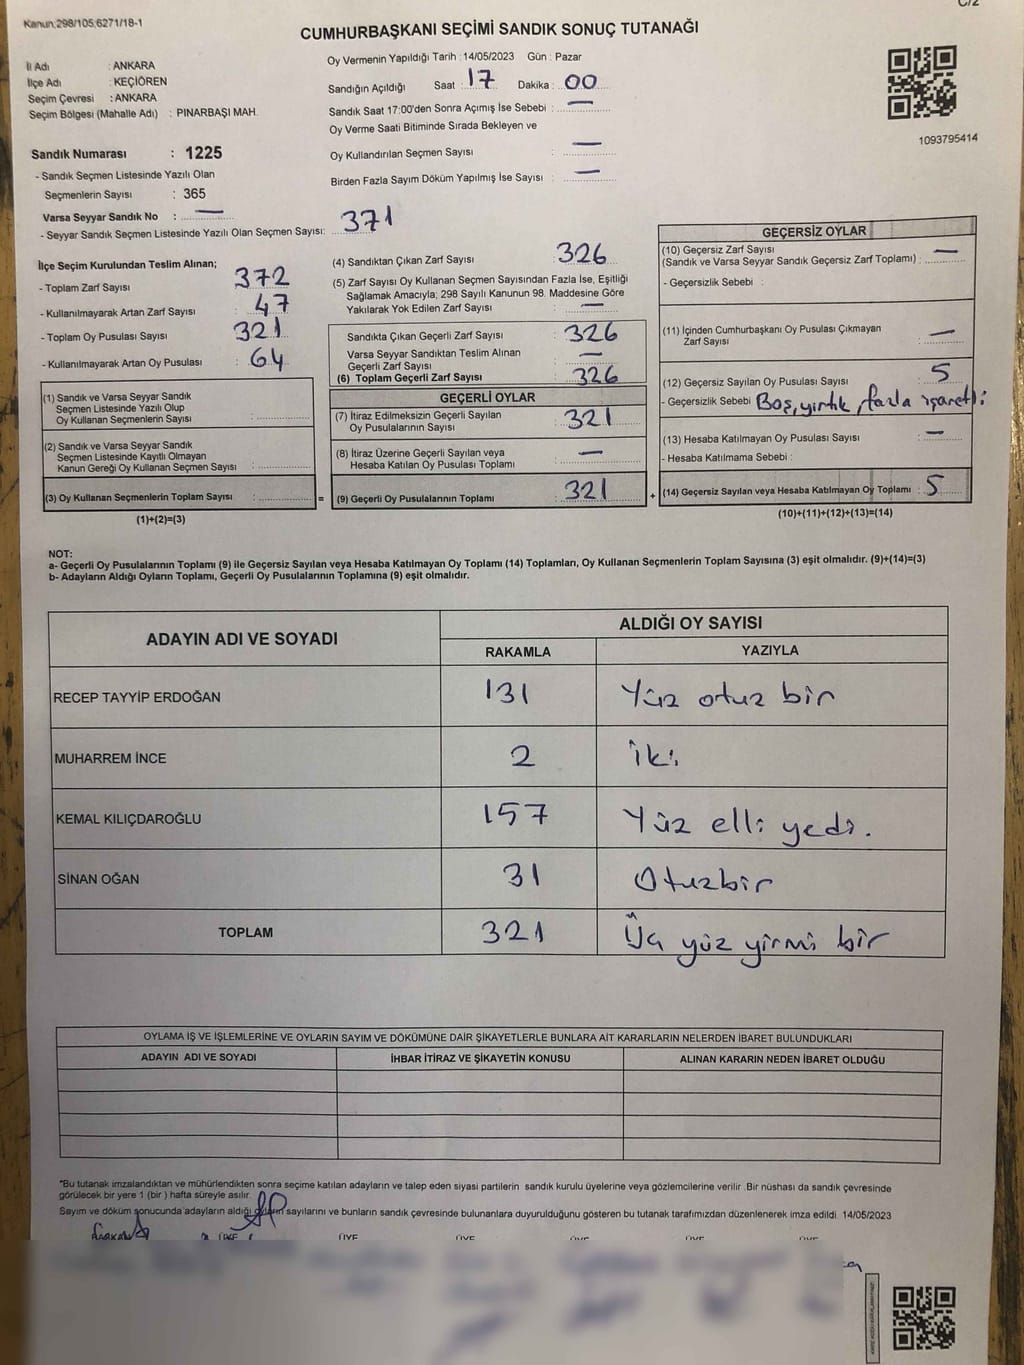 C/2
Kanun:298/105;6271/18-1
CUMHURBAŞKANI SEÇİMİ SANDIK SONUÇ TUTANAĞI
İl Adı : ANKARA
İlçe Adı : KEÇİÖREN
Seçim Çevresi : ANKARA
Seçim Bölgesi (Mahalle Adı) : PINARBAŞI MAH.
Sandık Numarası : 1225
- Sandık Seçmen Listesinde Yazılı Olan
Seçmenlerin Sayısı : 365
Varsa Seyyar Sandık No : —
- Seyyar Sandık Seçmen Listesinde Yazılı Olan Seçmen Sayısı: 371
Oy Vermenin Yapıldığı Tarih :14/05/2023 Gün : Pazar
Sandığın Açıldığı Saat : 17 Dakika : 00
Sandık Saat 17:00'den Sonra Açımış İse Sebebi : —
Oy Verme Saati Bitiminde Sırada Bekleyen ve
Oy Kullandırılan Seçmen Sayısı : —
Birden Fazla Sayım Döküm Yapılmış İse Sayısı : —
1093795414
İlçe Seçim Kurulundan Teslim Alınan;
- Toplam Zarf Sayısı : 372
- Kullanılmayarak Artan Zarf Sayısı : 47
- Toplam Oy Pusulası Sayısı : 321
- Kullanılmayarak Artan Oy Pusulası : 64
(1) Sandık ve Varsa Seyyar Sandık
Seçmen Listesinde Yazılı Olup
Oy Kullanan Seçmenlerin Sayısı :
(2) Sandık ve Varsa Seyyar Sandık
Seçmen Listesinde Kayıtlı Olmayan
Kanun Gereği Oy Kullanan Seçmen Sayısı :
(3) Oy Kullanan Seçmenlerin Toplam Sayısı :
(1)+(2)=(3)
(4) Sandıktan Çıkan Zarf Sayısı : 326
(5) Zarf Sayısı Oy Kullanan Seçmen Sayısından Fazla İse, Eşitliği
Sağlamak Amacıyla; 298 Sayılı Kanunun 98. Maddesine Göre
Yakılarak Yok Edilen Zarf Sayısı : —
Sandıkta Çıkan Geçerli Zarf Sayısı : 326
Varsa Seyyar Sandıktan Teslim Alınan
Geçerli Zarf Sayısı : —
(6) Toplam Geçerli Zarf Sayısı : 326
GEÇERLİ OYLAR
(7) İtiraz Edilmeksizin Geçerli Sayılan
Oy Pusulalarının Sayısı : 321
(8) İtiraz Üzerine Geçerli Sayılan veya
Hesaba Katılan Oy Pusulası Toplamı : —
= (9) Geçerli Oy Pusulalarının Toplamı : 321
GEÇERSİZ OYLAR
(10) Geçersiz Zarf Sayısı
(Sandık ve Varsa Seyyar Sandık Geçersiz Zarf Toplamı) : —
- Geçersizlik Sebebi :
(11) İçinden Cumhurbaşkanı Oy Pusulası Çıkmayan
Zarf Sayısı : —
(12) Geçersiz Sayılan Oy Pusulası Sayısı : 5
- Geçersizlik Sebebi : Boş, yırtık, fazla işaretli
(13) Hesaba Katılmayan Oy Pusulası Sayısı : —
- Hesaba Katılmama Sebebi :
+ (14) Geçersiz Sayılan veya Hesaba Katılmayan Oy Toplamı : 5
(10)+(11)+(12)+(13)=(14)
NOT:
a- Geçerli Oy Pusulalarının Toplamı (9) ile Geçersiz Sayılan veya Hesaba Katılmayan Oy Toplamı (14) Toplamları, Oy Kullanan Seçmenlerin Toplam Sayısına (3) eşit olmalıdır. (9)+(14)=(3)
b- Adayların Aldığı Oyların Toplamı, Geçerli Oy Pusulalarının Toplamına (9) eşit olmalıdır.
ADAYIN ADI VE SOYADI ALDIĞI OY SAYISI
RAKAMLA YAZIYLA
RECEP TAYYİP ERDOĞAN 131 Yüz otuz bir
MUHARREM İNCE 2 iki
KEMAL KILIÇDAROĞLU 157 Yüz elli yedi.
SİNAN OĞAN 31 Otuzbir
TOPLAM 321 Üç yüz yirmi bir
OYLAMA İŞ VE İŞLEMLERİNE VE OYLARIN SAYIM VE DÖKÜMÜNE DAİR ŞİKAYETLERLE BUNLARA AİT KARARLARIN NELERDEN İBARET BULUNDUKLARI
ADAYIN ADI VE SOYADI İHBAR İTİRAZ VE ŞİKAYETİN KONUSU ALINAN KARARIN NEDEN İBARET OLDUĞU
*Bu tutanak imzalandıktan ve mühürlendikten sonra seçime katılan adayların ve talep eden siyasi partilerin sandık kurulu üyelerine veya gözlemcilerine verilir .Bir nüshası da sandık çevresinde
görülecek bir yere 1 (bir ) hafta süreyle asılır.
Sayım ve döküm sonucunda adayların aldığı oyların sayılarını ve bunların sandık çevresinde bulunanlara duyurulduğunu gösteren bu tutanak tarafımızdan düzenlenerek imza edildi. 14/05/2023
ÜYE ÜYE ÜYE ÜYE ÜYE ÜYE